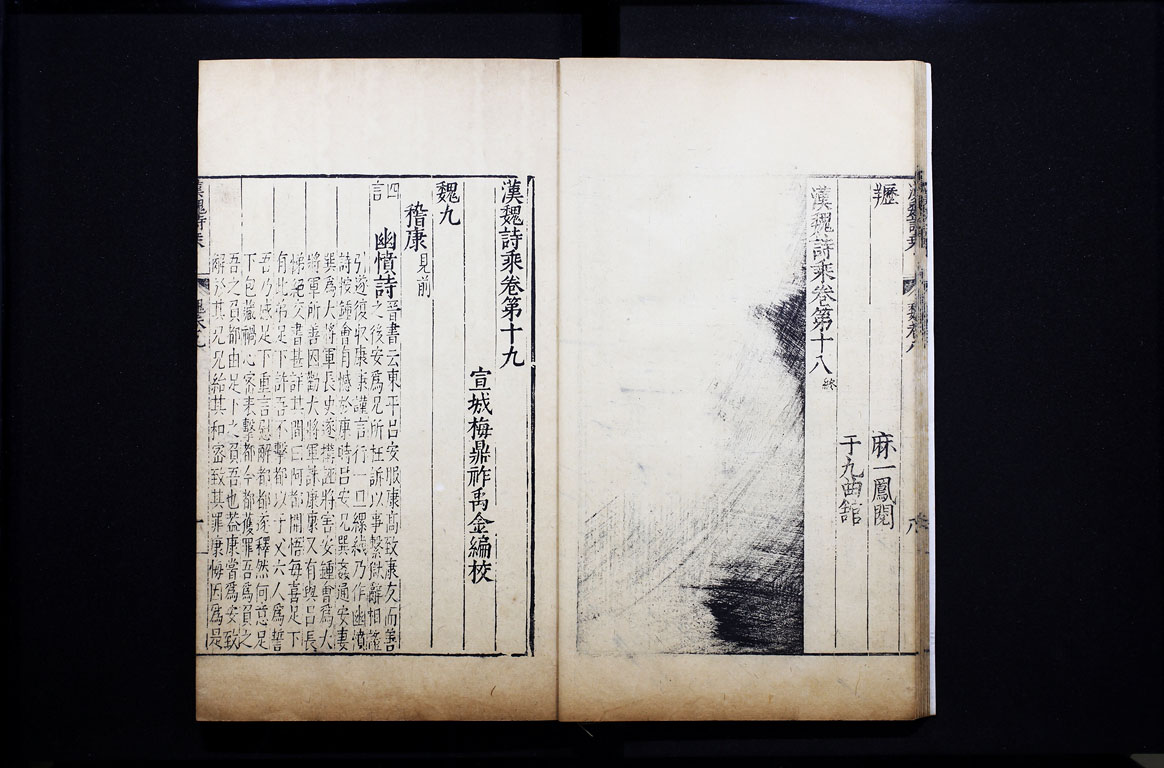 麻一鳳閱
于九曲館
漢魏詩乘卷第十八 終
漢魏詩乘卷第十九
宣城梅鼎祚禹金編校
魏九
稽康 見前
四言
幽憤詩 晉書云東平呂安服康高致康友而善
之後安爲兄所枉訴以事繫獄辭相證
引遂復收康康謹言行一旦縲紲乃作幽憤
詩按鍾會有憾於康時呂安兄巽姦通安妻
巽爲大將軍長史遂搆誣將害安鍾會爲大
將軍所善因勸大將軍誅康康又有與呂長
悌絶交書甚詳其間曰阿都開悟每喜足下
有此弟足下許吾不擊都以子父六人爲誓
吾乃感足下重言慰解都都遂釋然何意足
下包藏禍心密表擊都今都獲罪吾爲負之
吾之負都由足下之負吾也葢康嘗爲安致
解於其兄兄紿其和密致其罪康悔因爲是
漢魏詩乘 魏卷九 一